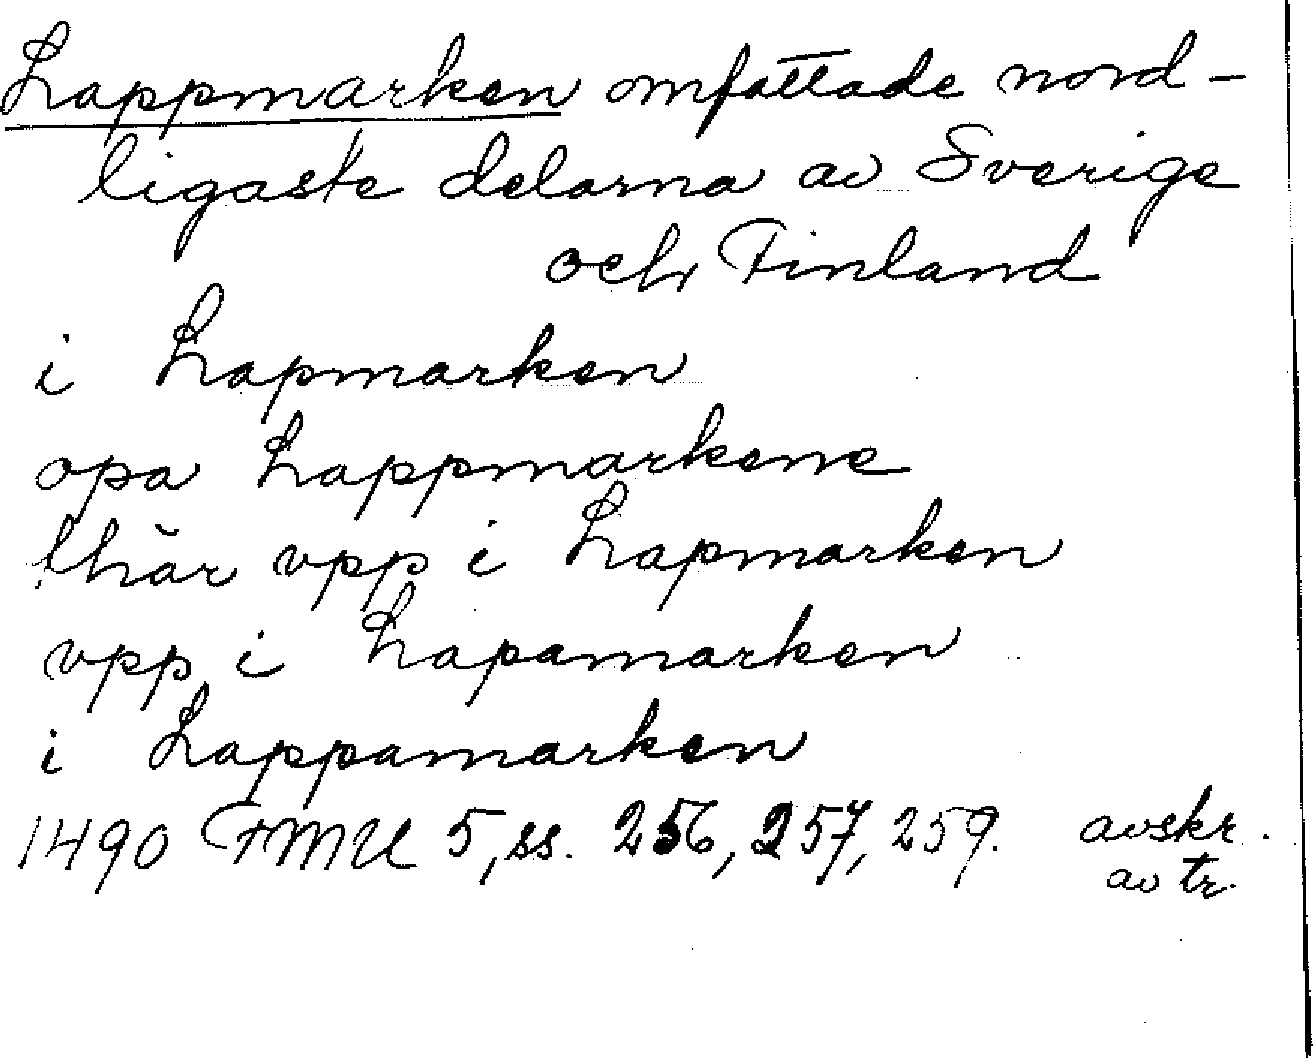 Lappmarken omfattade nord-
ligaste delarna av Sverige
och Finland
i Lapmarken
opa Lappmarkene
thär vpp i Lapmarken
vpp i Lapamarken
i Lappamarken
1490 FMU 5, ss. 256, 257, 259. avskr.
av tr.